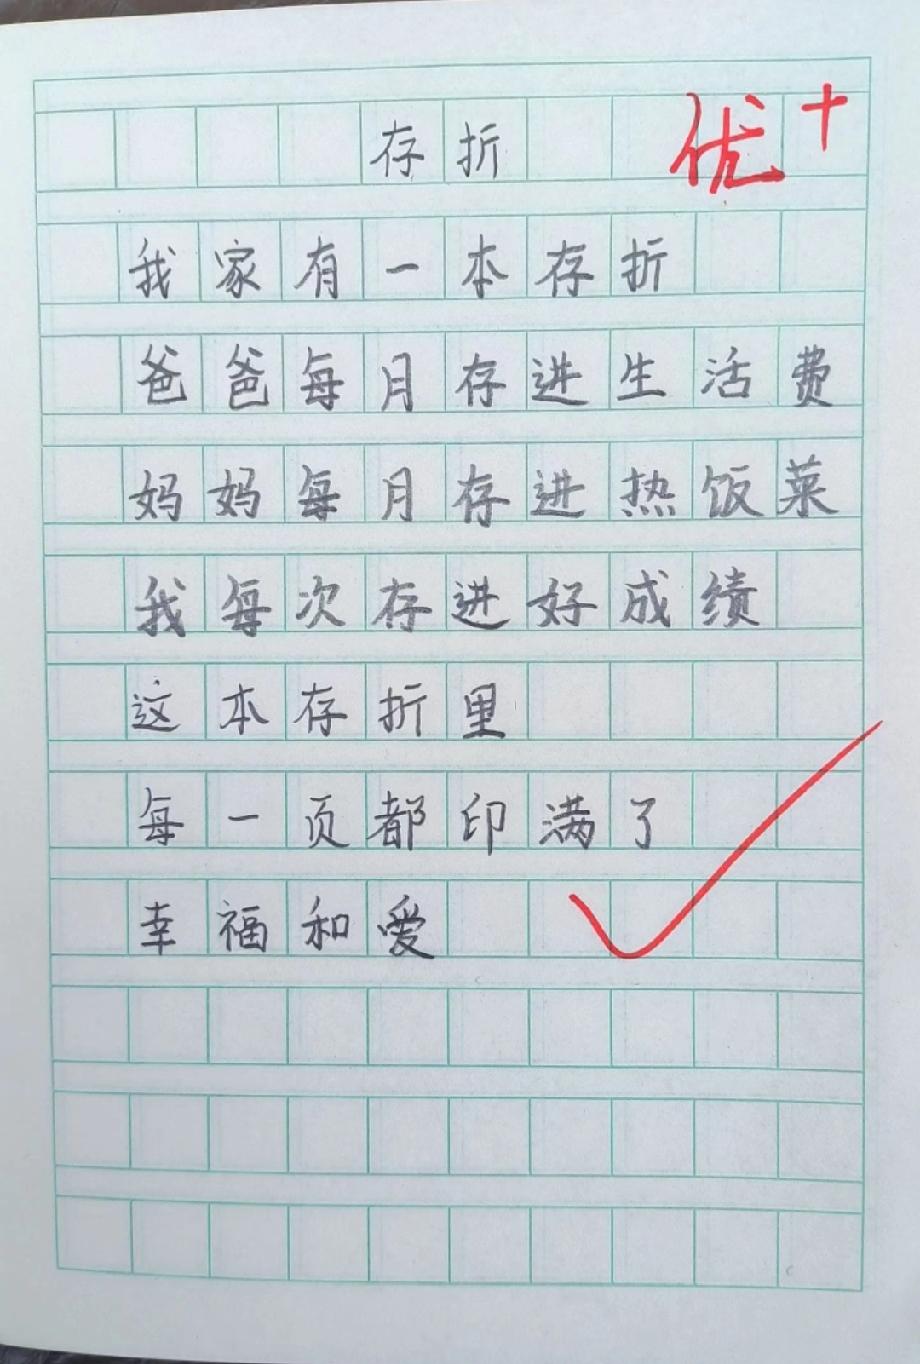 存折 优+
我家有一本存折
爸爸每月存进生活费
妈妈每月存进热饭菜
我每次存进好成绩
这本存折里
每一页都印满了
幸福和爱